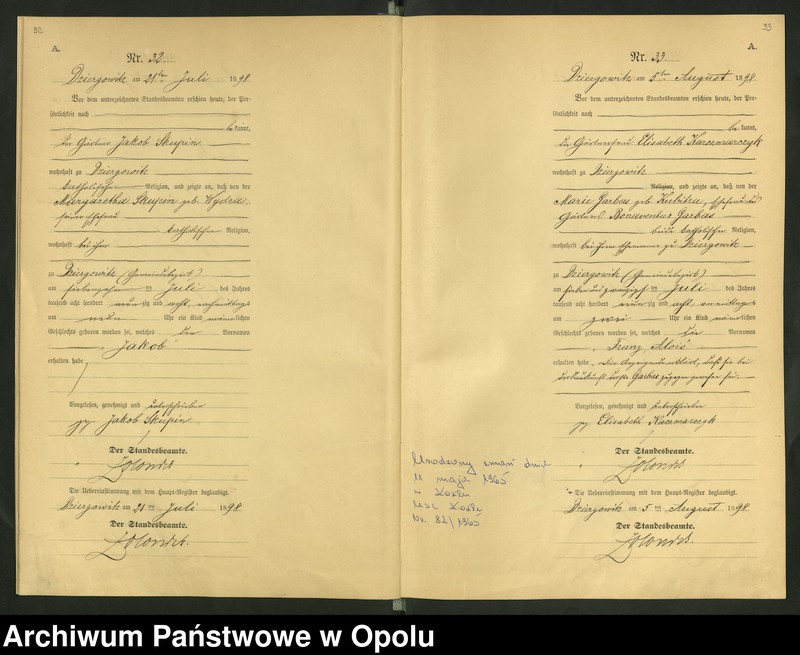 32
A.
Nr. 32
Dziergowitz am 21ten Juli 1898
Vor dem unterzeichneten Standesbeamten erschien heute, der Per-
sönlichkeit nach
bekannt,
der Gärtner Jakob Skupin
wohnhaft zu Dziergowitz
katholischer Religion, und zeigte an, daß von der
Margaretha Skupin geb. Wydra
seiner Ehefrau
katholischer Religion,
wohnhaft bei ihm
zu Dziergowitz (Gemeindebezirk)
am siebzehn ten Juli des Jahres
tausend acht hundert neunzig und acht, nachmittags
um neun Uhr ein Kind männlichen
Geschlechts geboren worden sei, welches den Vornamen
Jakob
erhalten habe
Vorgelesen, genehmigt und unterschrieben
gez Jakob Skupin
Der Standesbeamte.
Zolondek
Die Uebereinstimmung mit dem Haupt-Register beglaubigt.
Dziergowitz am 21 ten Juli 1898
Der Standesbeamte.
Zolondek.
33
A.
Nr. 33
Dziergowitz am 5ten August 1898
Vor dem unterzeichneten Standesbeamten erschien heute, der Per-
sönlichkeit nach
bekannt,
die Gärtnerfrau Elisabeth Kaczmarczyk
wohnhaft zu Dziergowitz
Religion, und zeigte an, daß von der
Marie Garbas geb. Kubitza, Ehefrau des
Gärtners Bonaventur Garbas
beide katholischer Religion,
wohnhaft bei ihrem Ehemanne zu Dziergowitz
zu Dziergowitz (Gemeindebezirk)
am siebenundzwanzigsten Juli des Jahres
tausend acht hundert neunzig und acht vormittags
um zwei Uhr ein Kind männlichen
Geschlechts geboren worden sei, welches die Vornamen
Franz Alois
erhalten habe. Die Anzeigende erklärt, daß sie bei
der Niederkunft der Garbas zugegen gewesen sei.
Vorgelesen, genehmigt und unterschrieben
gez Elisabeth Kaczmarczyk
Der Standesbeamte.
Zolondek
Die Uebereinstimmung mit dem Haupt-Register beglaubigt.
Dziergowitz am 5 ten August 1898
Der Standesbeamte.
Zolondek.
zmarł dnia
11 maja 1965
w Koźlu
USC Koźle
Nr. 82/1965
Archiwum Państwowe w Opolu